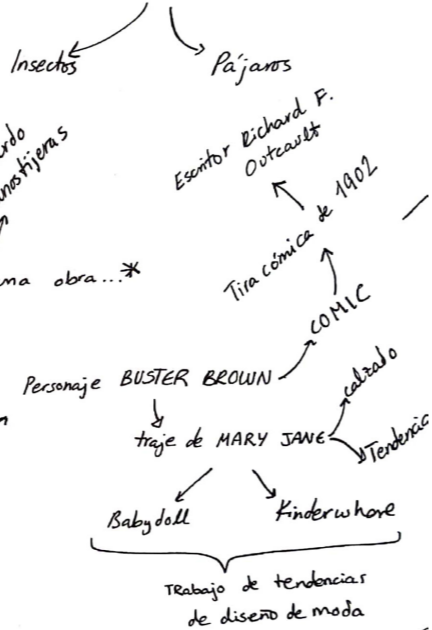 Insectos
Pájaros
Escritor Richard F.
Outcault
Tira cómica de 1902
obra...*
COMIC
Personaje BUSTER BROWN
calzado
traje de MARY JANE
Tendencia
Babydoll
Kinderwhore
TRabajo de tendencias
de diseño de moda